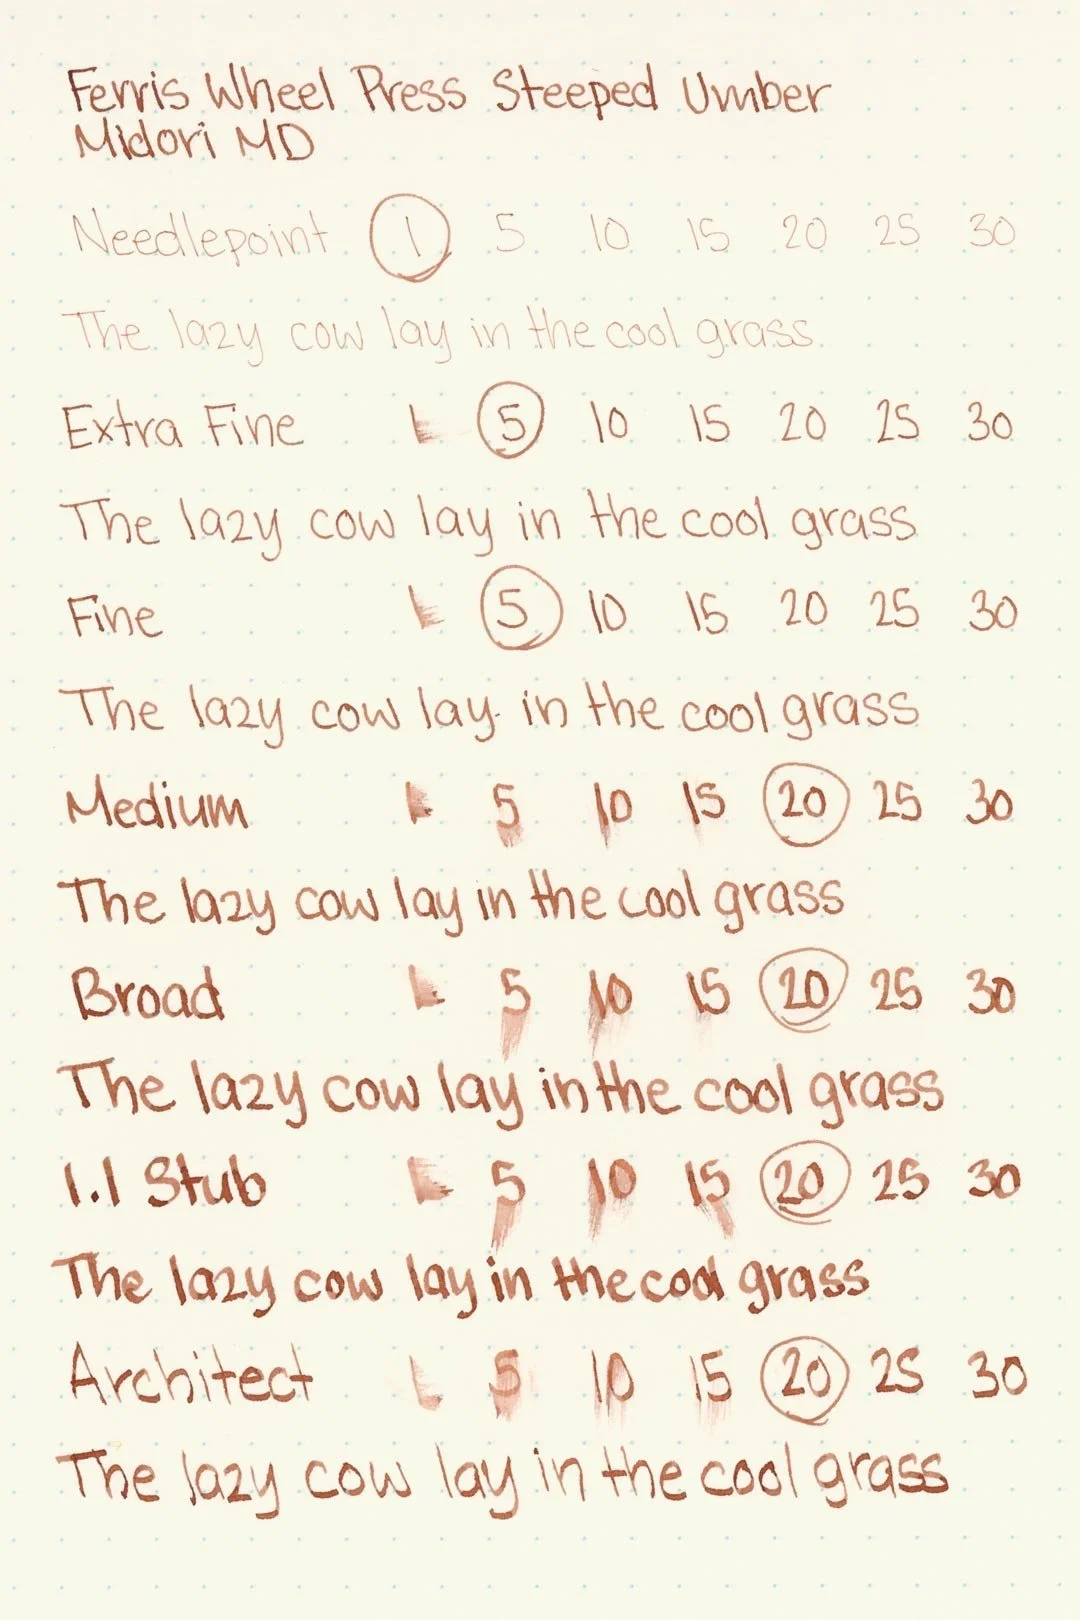 Ferris Wheel Press Steeped Umber
Midori MD
Needlepoint 1 5 10 15 20 25 30
The lazy cow lay in the cool grass
Extra Fine 1 5 10 15 20 25 30
The lazy cow lay in the cool grass
Fine 1 5 10 15 20 25 30
The lazy cow lay in the cool grass
Medium 1 5 10 15 20 25 30
The lazy cow lay in the cool grass
Broad 1 5 10 15 20 25 30
The lazy cow lay in the cool grass
1.1 Stub 1 5 10 15 20 25 30
The lazy cow lay in the cool grass
Architect 1 5 10 15 20 25 30
The lazy cow lay in the cool grass